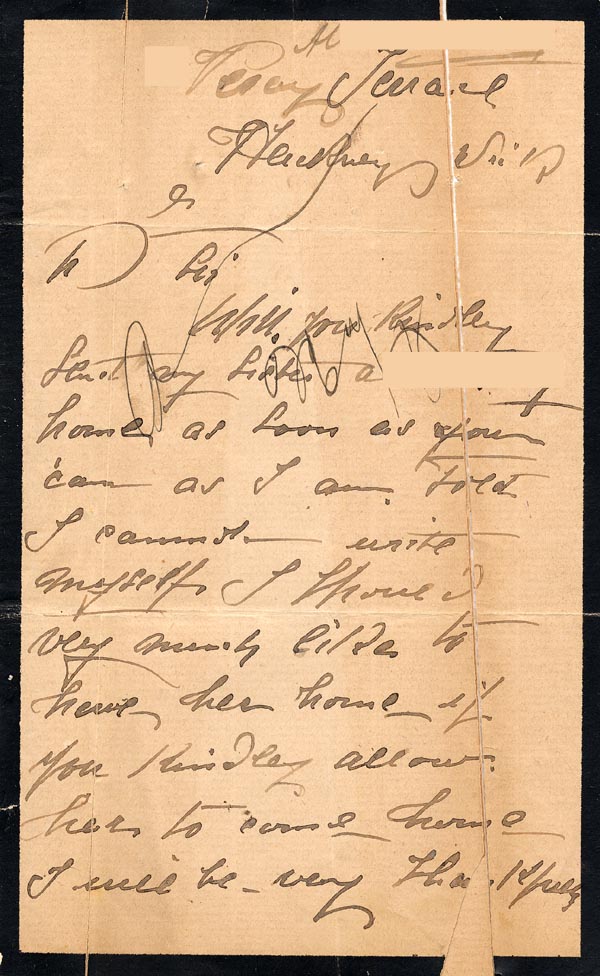 Al
Percy Terrace
Hackney Wick
D Sir
Will you Kindley
Sent my Sister a
home as soon as you
can as I am told
I cannot write
myself I should
very much like to
have her home if
you Kindley allow
her to come home
I will be very thankfull